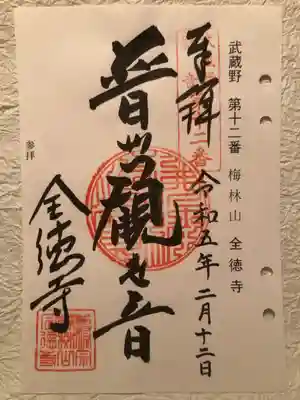 武蔵野 第十二番 梅林山 全徳寺
奉拝
令和五年二月十二日
普世観世音
全徳寺
参拝